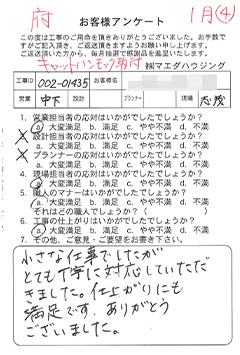 府 1月(4)
お客様アンケート
この度は工事のご用命を頂きありがとうございました。お手数で
すがご記入頂き、ご返送頂きますようお願い申し上げます。
ご返送頂いた方から、毎月抽選で感謝品を進呈いたします。
キャットハンモック取付 ㈱マエダハウジング
工事ID 002-01435 お客様名
営業 中下 設計 プランナー 現場
1. 営業担当者の応対はいかがでしたでしょうか?
a 大変満足 b. 満足 c. やや不満 d. 不満
2. 設計担当者の応対はいかがでしたでしょうか?
a. 大変満足 b. 満足 c. やや不満 d. 不満
3. プランナーの応対はいかがでしたでしょうか?
a. 大変満足 b. 満足 c. やや不満 d. 不満
4. 現場担当者の応対はいかがでしたでしょうか?
a 大変満足 b. 満足 c. やや不満 d. 不満
5. 職人のマナーはいかがでしたでしょうか?
a 大変満足 b. 満足 c. やや不満 d. 不満
それはどの職人でしょうか? ( )
6. 工事の仕上がりはいかがでしたでしょうか?
a 大変満足 b. 満足 c. やや不満 d. 不満
7. その他、ご意見・ご要望をお書き下さい。
小さな仕事でしたが
とても丁寧に対応していただ
きました。仕上がりにも
満足です。ありがとう
ございました。